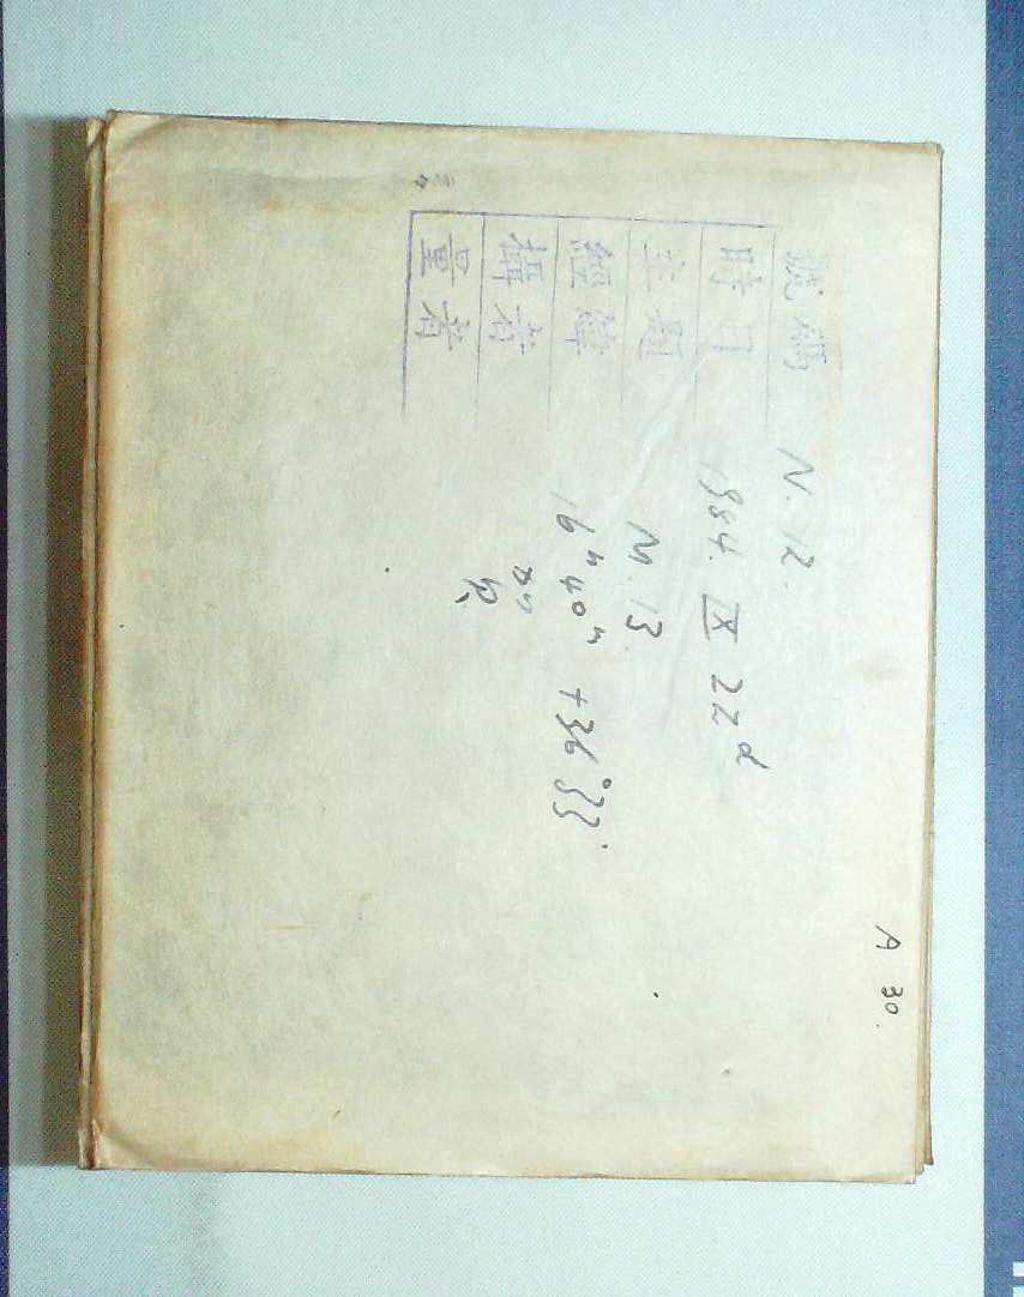 A 30.
號碼 N. 12.
時日 1984. IX 22d
主題 M. 13
經緯 16h 40m +36°33'
攝者
量者